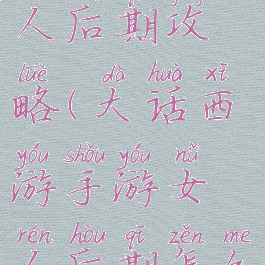 人后期攻
lüè dà huà xī
略(大话西
yóu shǒu yóu nǚ
游手游女
rén hòu qī zěn me
人后期怎么